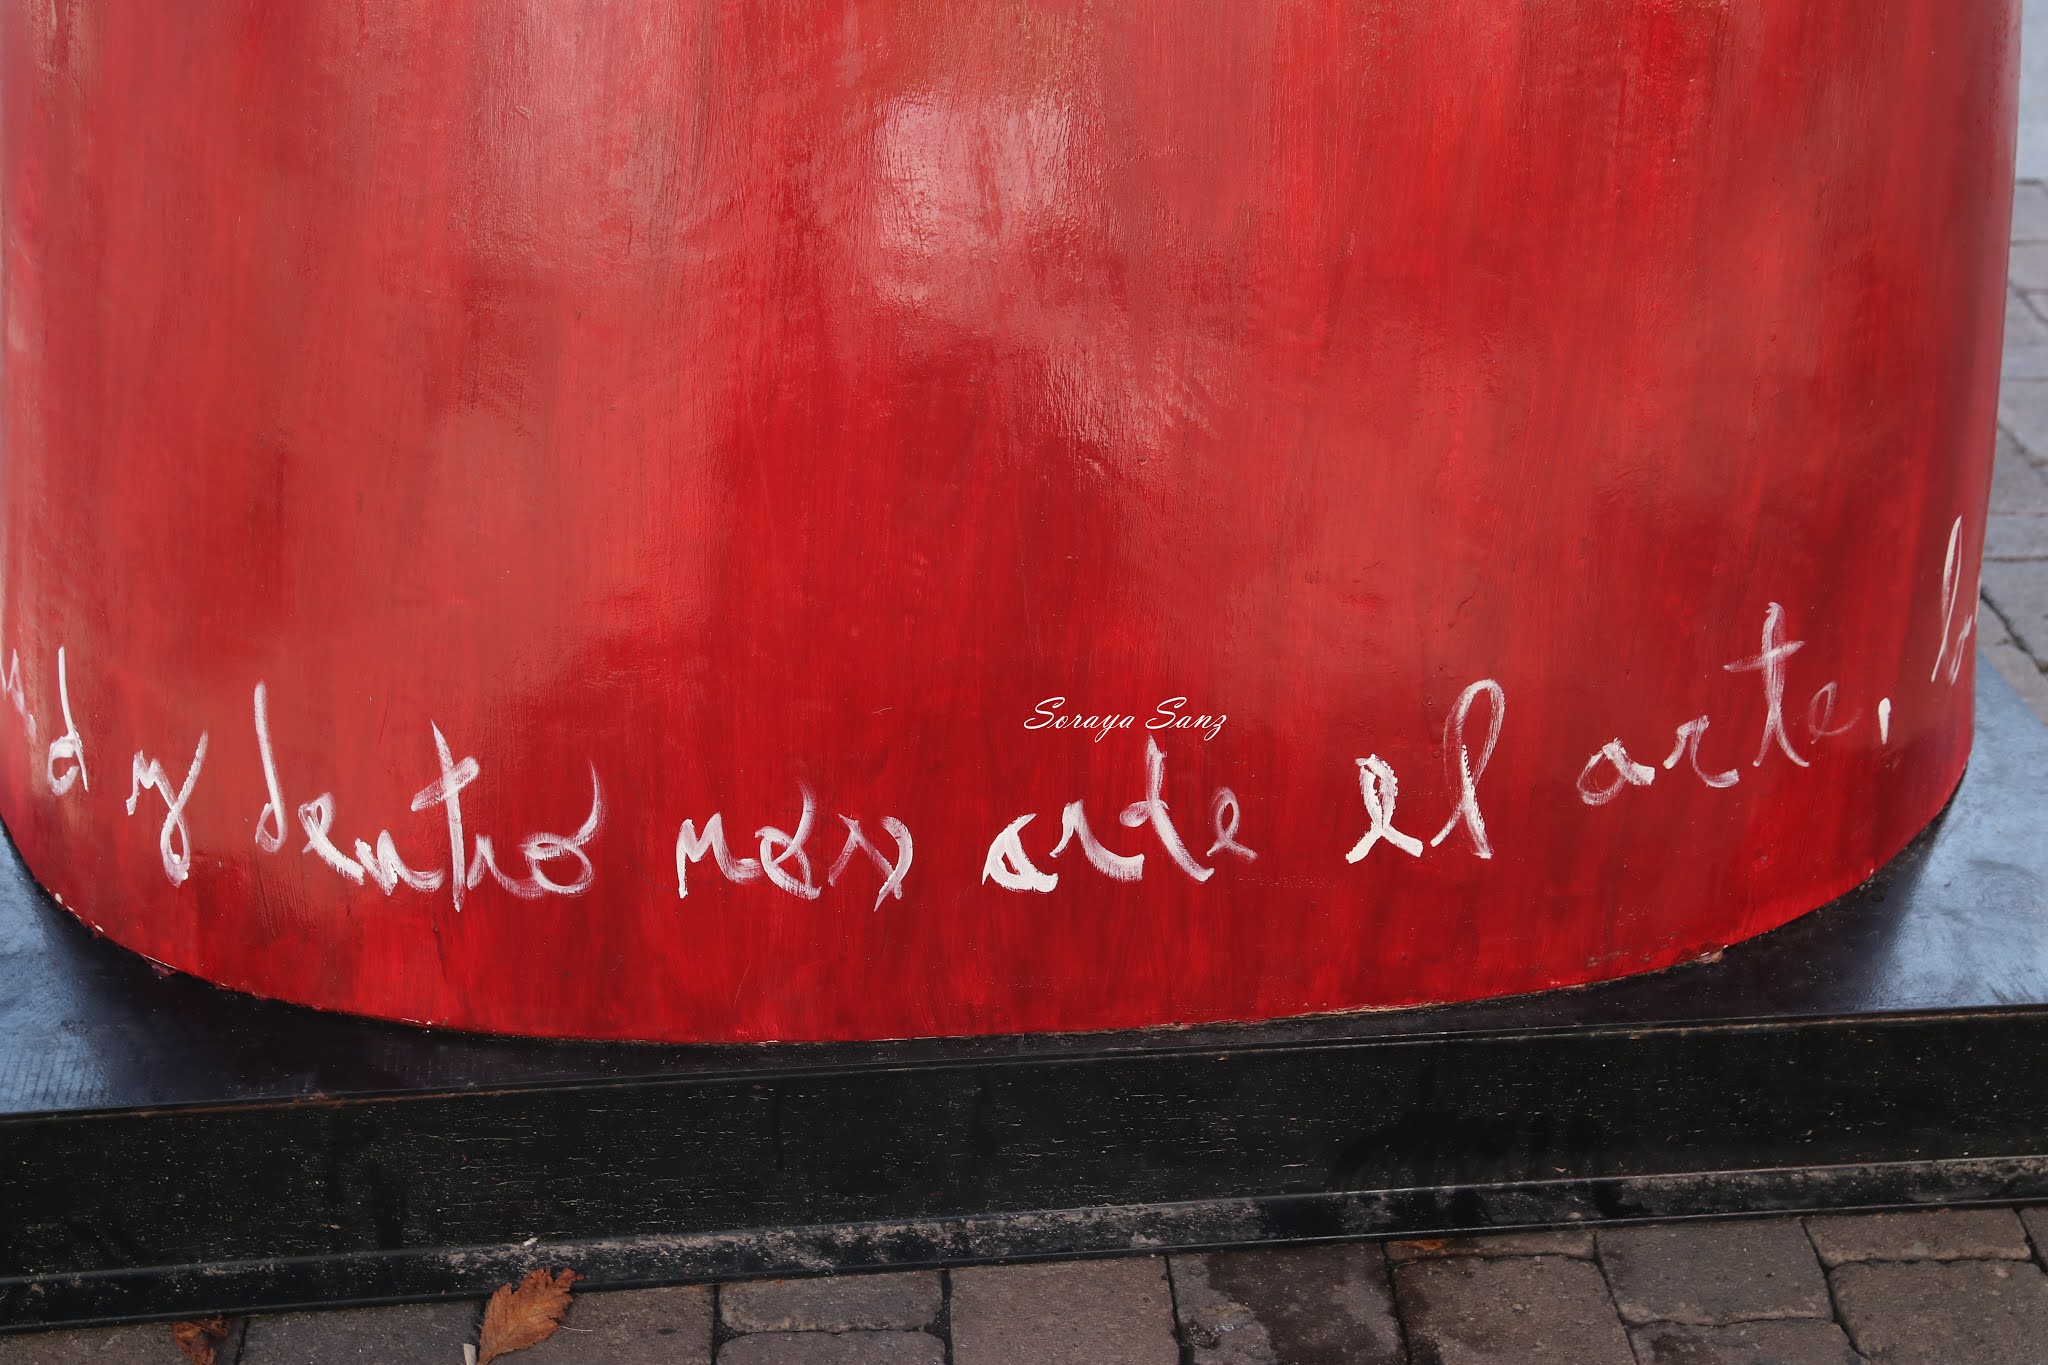 Soraya Sanz
d y dentro mas arte el arte,